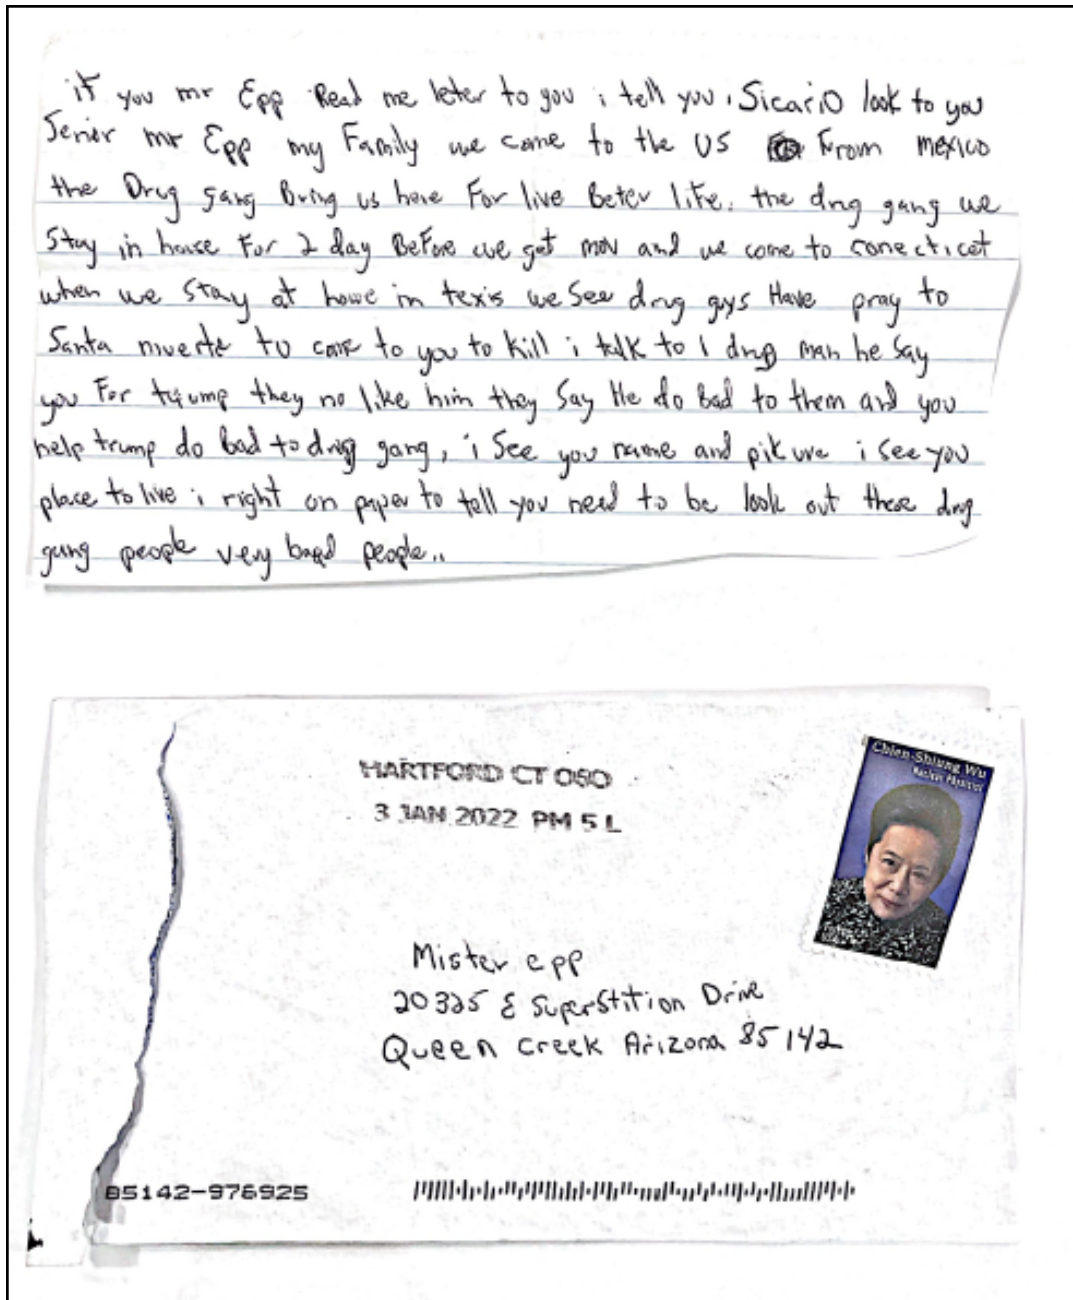 if you mr Epp Read me leter to you i tell you i Sicario look to you
Senior mr Epp my Family we come to the US From mexico
the Drug gang Bring us here For live Beter life. the drug gang we
Stay in house For 2 day Before we get mov and we come to conecticet
when we Stay at howe in texis we See drug guys Have pray to
Santa muerte to come to you to kill i talk to 1 drug man he Say
you For trump they no like him they Say He do bad to them and you
help trump do bad to drug gang, i See you name and pikure i see you
place to live i right on paper to tell you need to be look out these drug
gang people very bad people..
HARTFORD CT 060
3 JAN 2022 PM 5 L
Chien-Shiung Wu
Nuclear Physicist
Mister epp
20325 E Superstition Drive
Queen Creek Arizona 85142
85142-976925